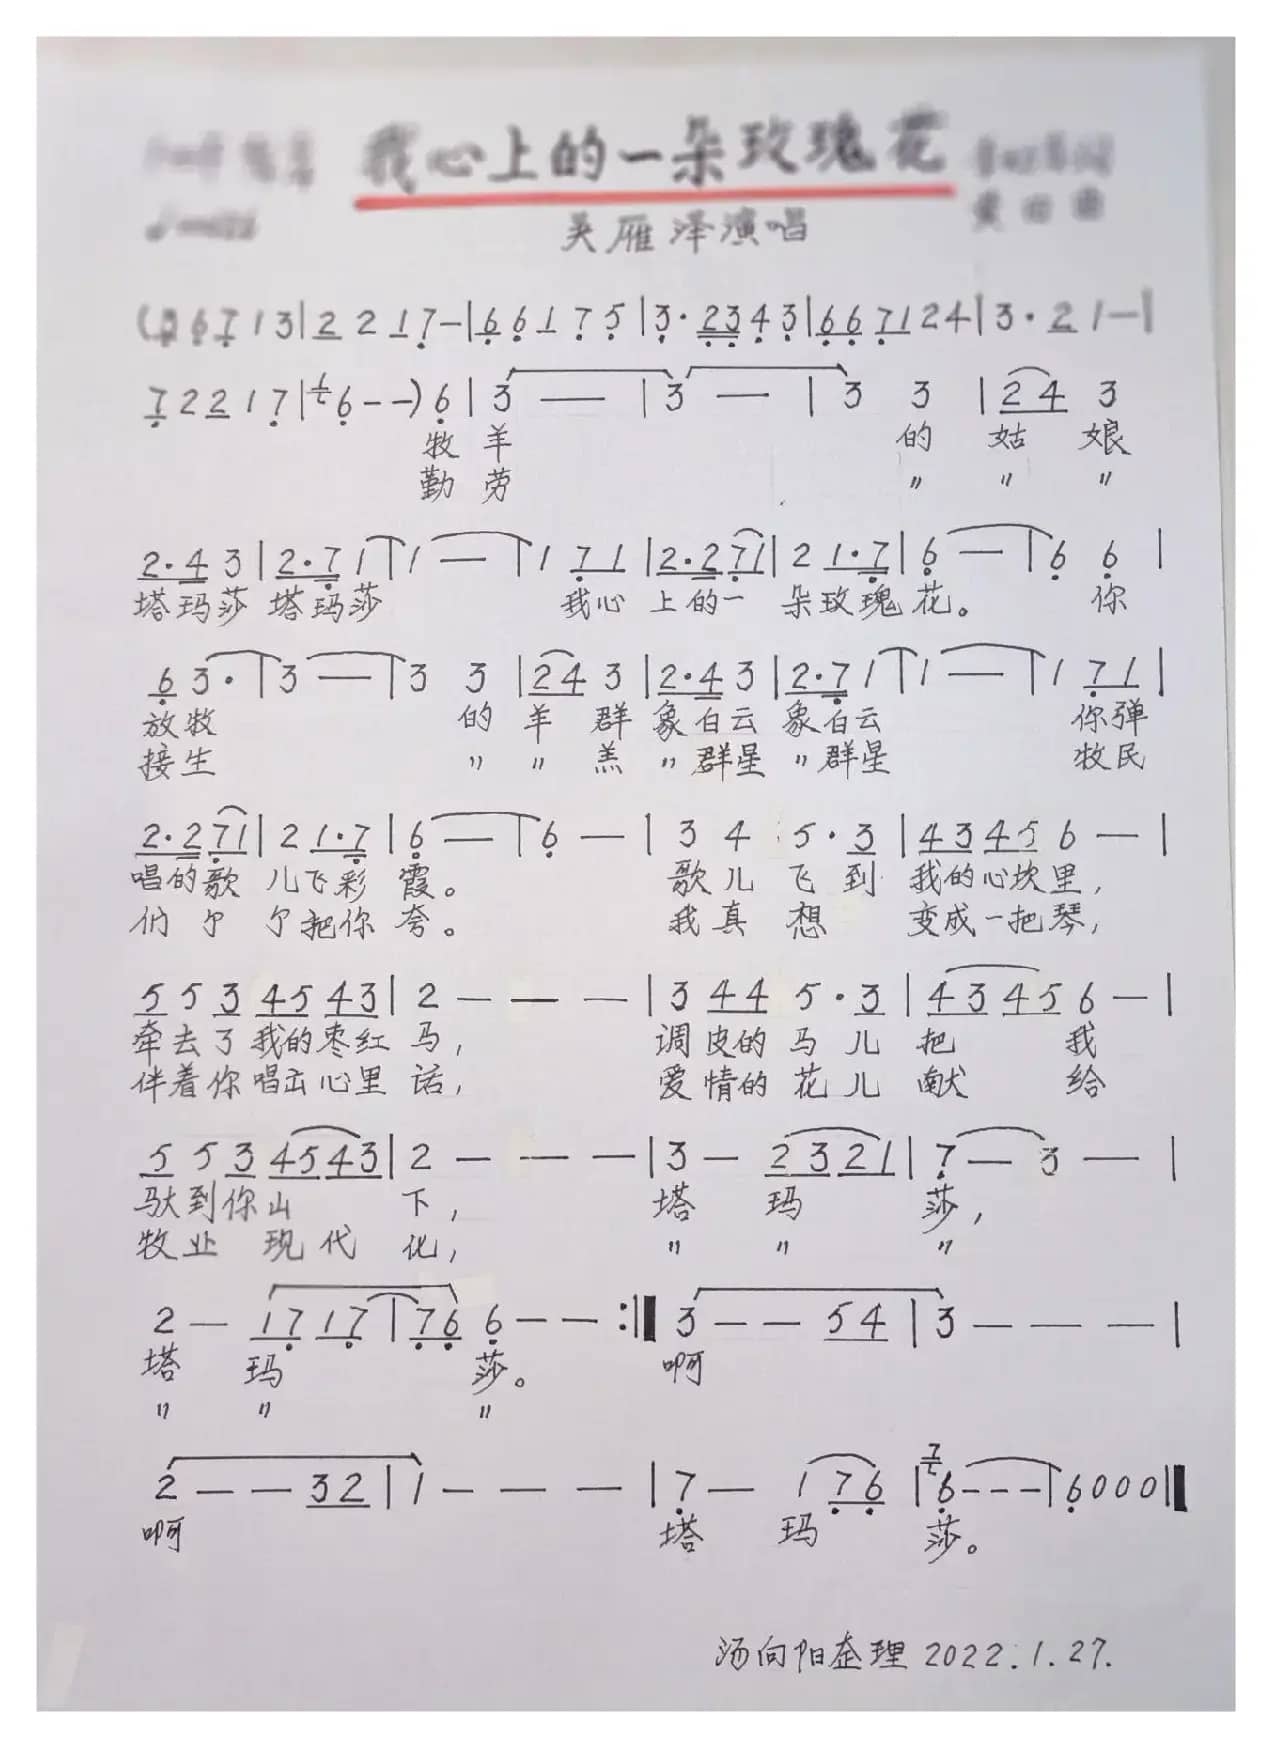 我心上的一朵玫瑰花
吴雁泽演唱
6 7 1 3 | 2 2 1 7 — | 6 6 1 7 5 | 3 · 2 3 4 3 | 6 6 7 1 2 4 | 3 · 2 1 — |
7 2 2 1 7 | 6 — — ) 6 | 3 — | 3 — | 3 3 | 2 4 3
牧 羊 的 姑 娘
勤 劳 〃 〃 〃
2 · 4 3 | 2 · 7 1 | 1 — | 1 7 1 | 2 · 2 7 1 | 2 1 · 7 | 6 — | 6 6 |
塔玛莎 塔玛莎 我心 上的一 朵玫瑰花。 你
6 3 · | 3 — | 3 3 | 2 4 3 | 2 · 4 3 | 2 · 7 1 | 1 — | 1 7 1 |
放牧 的 羊 群 象白云 象白云 你弹
接生 〃 〃 羔 〃群星 〃群星 牧民
2 · 2 7 1 | 2 1 · 7 | 6 — | 6 — | 3 4 5 · 3 | 4 3 4 5 6 — |
唱的歌 儿飞彩 霞。 歌儿 飞到 我的心坎里,
们 尔 尔把你 夸。 我真 想 变成一把琴,
5 5 3 4 5 4 3 | 2 — — — | 3 4 4 5 · 3 | 4 3 4 5 6 — |
牵去了我的枣红 马, 调皮的马儿 把 我
伴着你唱出心里 话, 爱情的花儿 献 给
5 5 3 4 5 4 3 | 2 — — — | 3 — 2 3 2 1 | 7 — 3 — |
驮到你山 下, 塔 玛 莎,
牧业 现代 化, 〃 〃 〃
2 — 1 7 1 7 | 7 6 6 — — :| 3 — — 5 4 | 3 — — — |
塔 玛 莎。 啊
〃 〃 〃
2 — — 3 2 | 1 — — — | 7 — 1 7 6 | 7 6 — — — | 6 0 0 0 |
啊 塔 玛 莎。
汤向阳整理 2022.1.27.